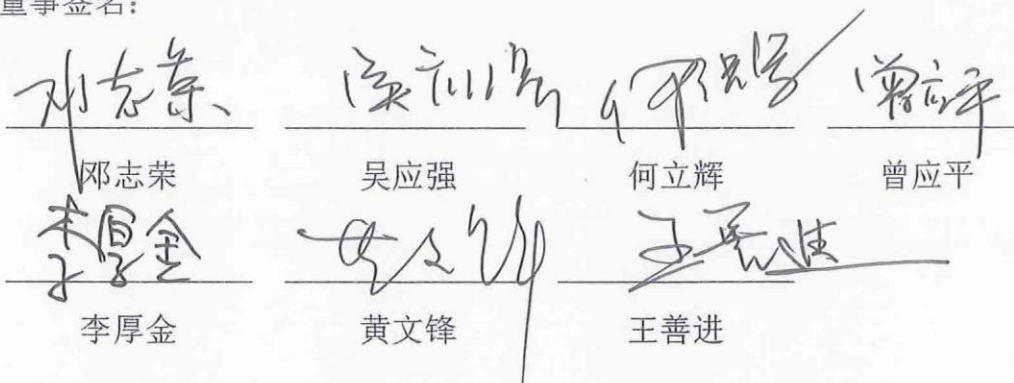 董事签名：
邓志荣 吴应强 何立辉 曾应平
邓志荣 吴应强 何立辉 曾应平
李厚金 黄文锋 王善进
李厚金 黄文锋 王善进